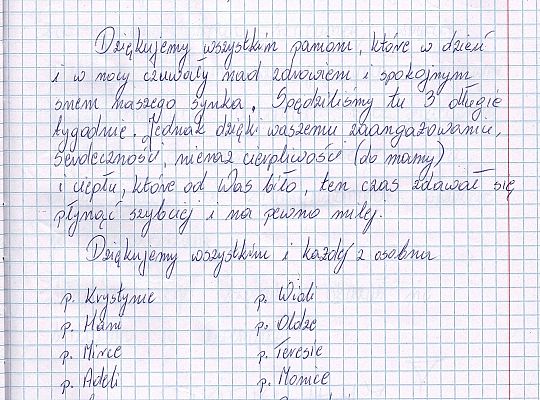 Dziękujemy wszystkim paniom, które w dzień
i w nocy czuwały nad zdrowiem i spokojnym
snem naszego synka. Spędziliśmy tu 3 długie
tygodnie. Jednak dzięki waszemu zaangażowaniu,
serdeczności, nieraz cierpliwości (do mamy)
i ciepłu, które od Was biło, ten czas zdawał się
płynąć szybciej i na pewno milej.
Dziękujemy wszystkim i każdej z osobna
p. Krystynie
p. Hani
p. Mirce
p. Adeli
p. Wioli
p. Oldze
p. Teresie
p. Monice